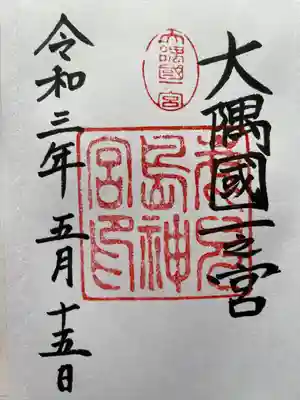 大隅國一之宮
大隅國一宮
鹿兒
島神
宮印
令和三年五月十五日